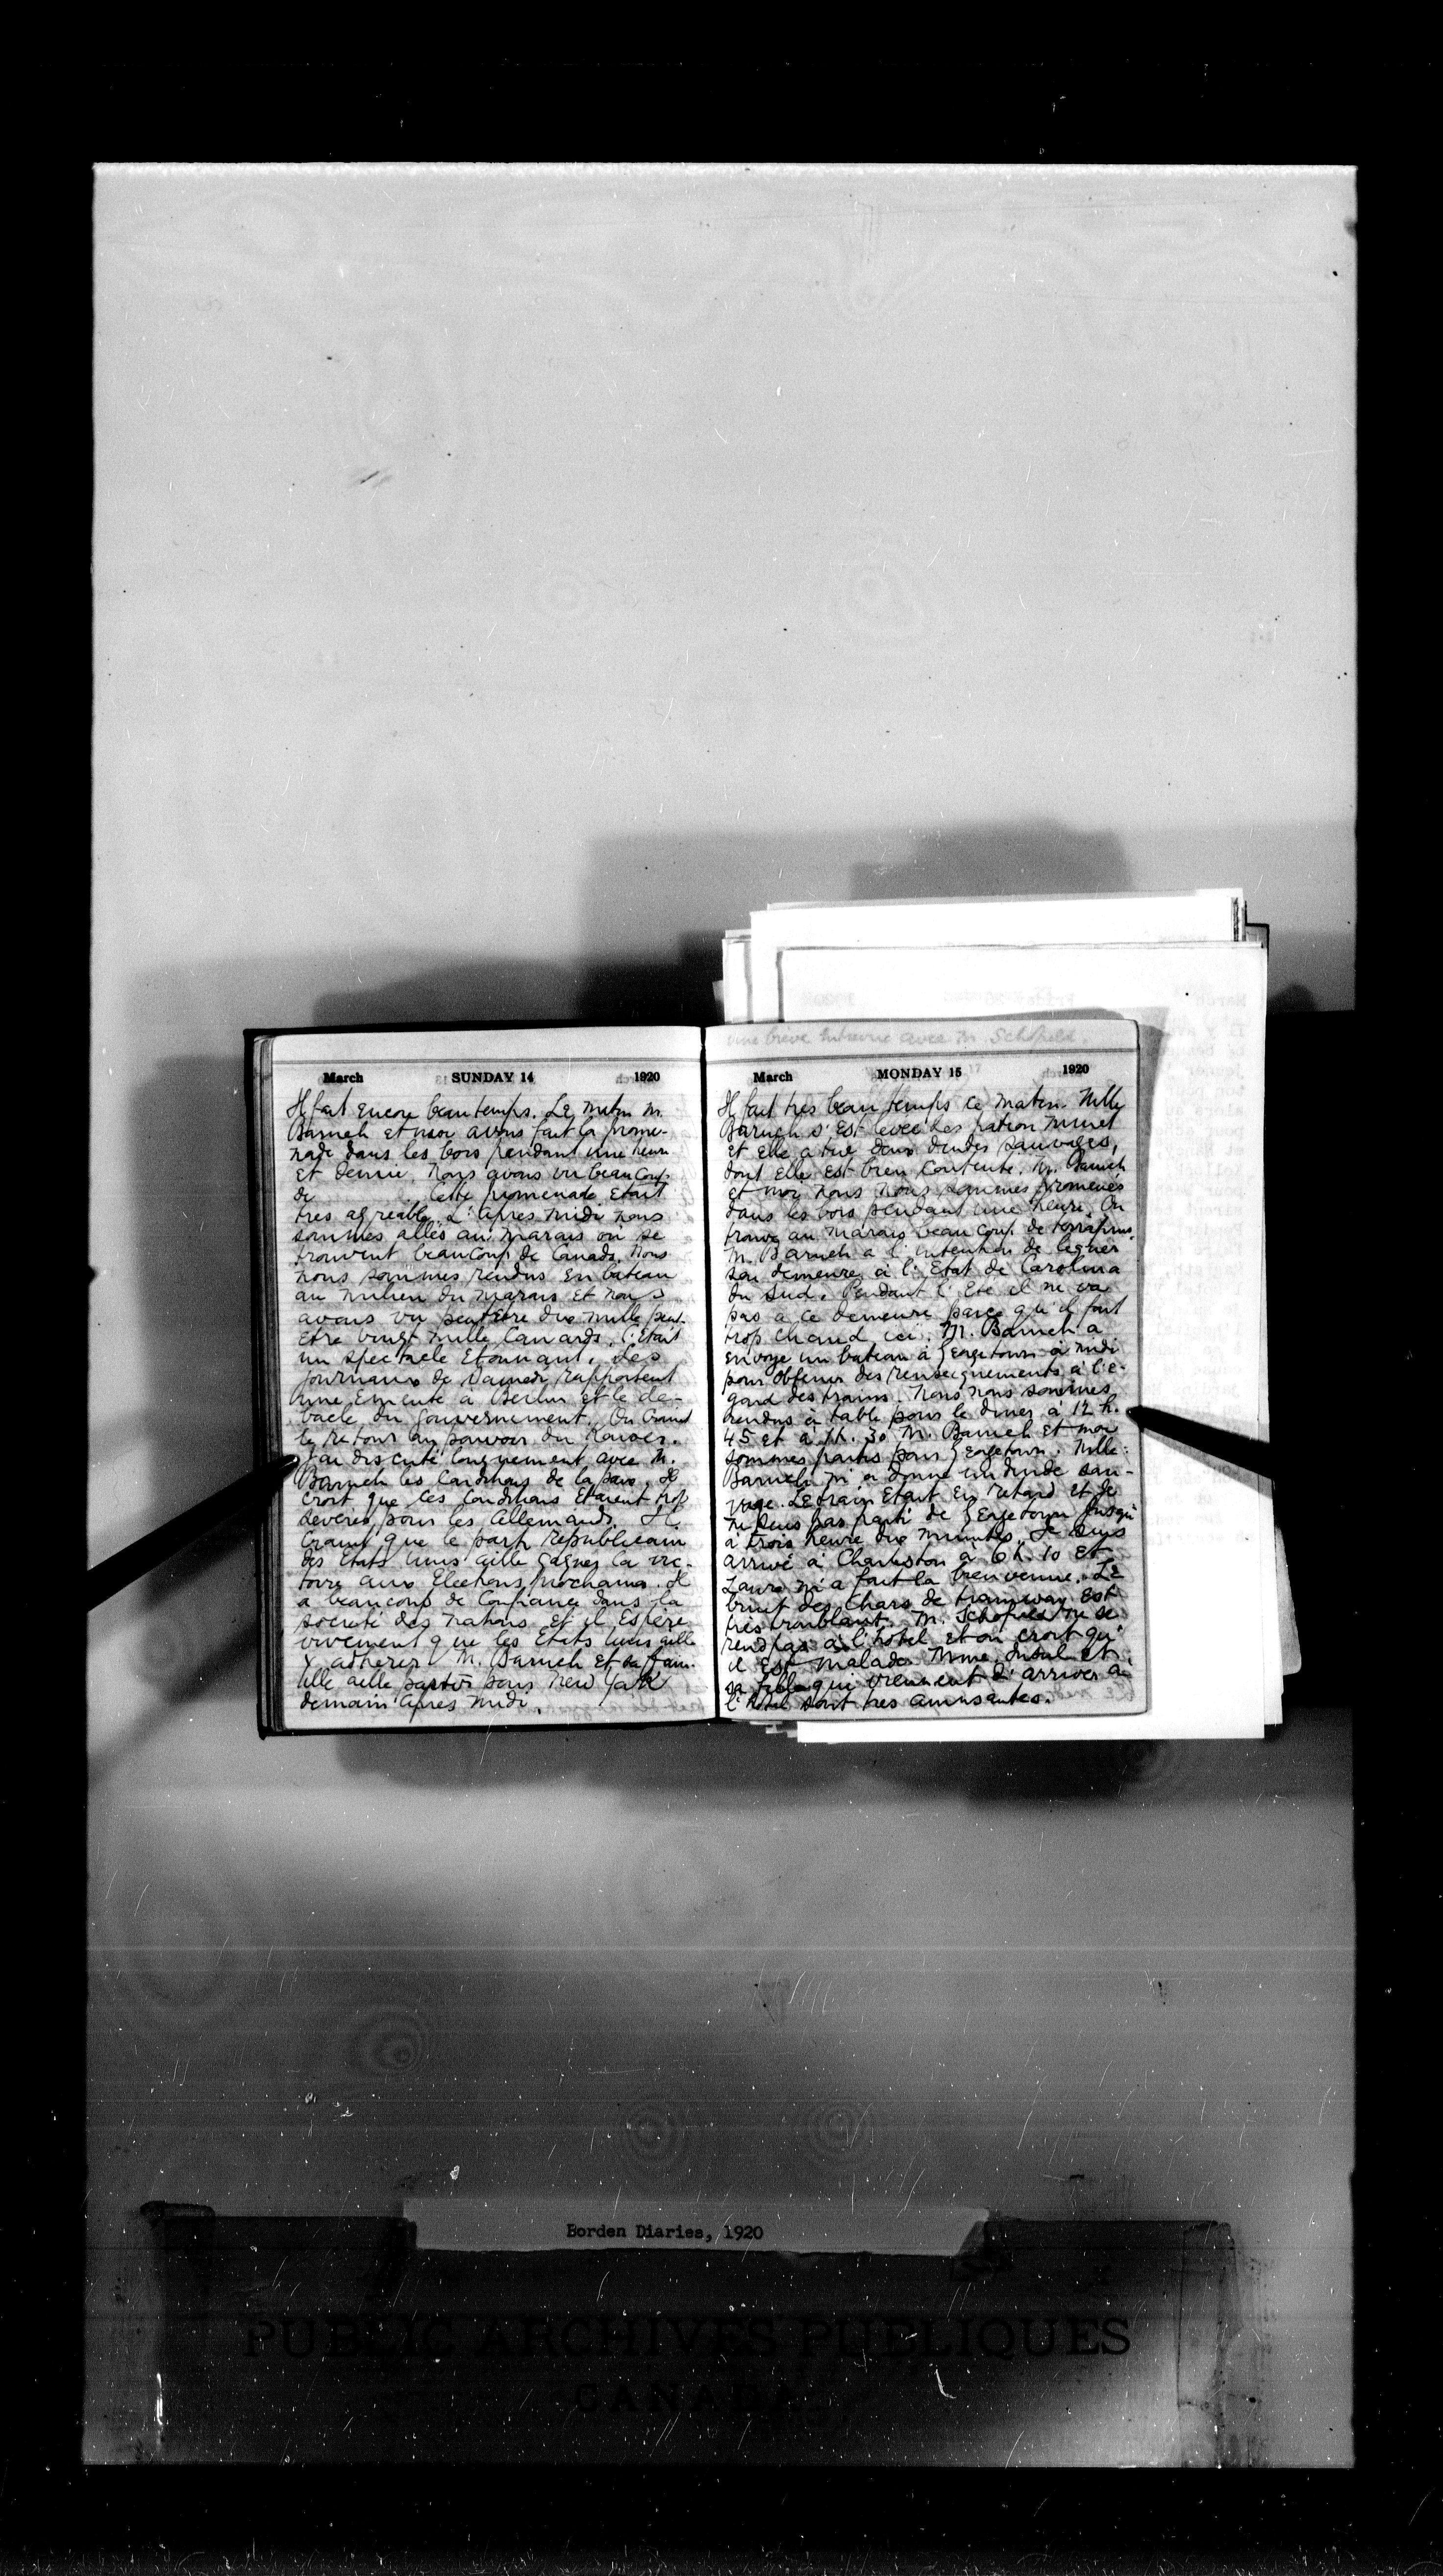 March SUNDAY 14 1920
Il fait encore beau temps. Le matin M.
Baruch et moi avons fait la prome-
nade dans les bois pendant une heure
et demie. Nous avons vu beaucoup
de Cette promenade etait
tres agreable. L'apres midi nous
sommes allés au marais où se
trouvent beaucoup de Canads. Nous
nous sommes rendus en bateau
au milieu du marais et nous
avons vu peutetre dix mille peut-
etre vingt mille Canards. C'etait
un spectacle etonnant. Les
journaux de Samedi rapportent
une emeute a Berlin et le de-
bacle du gouvernement. On craint
le retour au pouvoir du Kaiser.
J'ai discuté longuement avec M.
Baruch les conditions de la paix. Il
croit que les conditions etaient trop
severes pour les Allemands. Il
craint que le parti republicain
des Etats Unis aille gagner la vic-
toire aux Elections prochains. Il
a beaucoup de confiance dans la
societé des nations et il espere
vivement que les Etats Unis aille
y adherer. M. Baruch et sa fam-
ille aille partir pour New York
demain apres midi.
une breve entrevue avec M. Schofield.
March MONDAY 15 1920
Il fait tres beau temps ce matin. Mlle
Baruch s'est levée
et elle a tué deux dindes sauvages,
dont elle est bien contente. M. Baruch
et moi nous nous sommes promenés
dans les bois pendant une heure. On
trouve au marais beaucoup de terrapins.
M. Baruch a l'intention de leguer
sa demeure à l'Etat de Carolina
du Sud. Pendant l'Eté il ne va
pas a ce demeure parce qu'il fait
trop chaud ici. M. Baruch a
envoyé un bateau à Georgetown à midi
pour obtenir des renseignements à l'e-
gard des trains. Nous nous sommes
rendus à table pour le diner à 12 h.
45 et à 1h. 30 M. Baruch et moi
sommes partis pour Georgetown. Mlle:
Baruch m'a donné un dinde sau-
vage. Le train etait en retard et je
ne suis pas parti de Georgetown jusqu'
à trois heure dix minutes. Je suis
arrivé à Charleston à 6 h. 10 et
Laura m'a fait la bienvenue. Le
bruit des chars de tramway est
très troublant. M. Schofield ne se
rend pas à l'hôtel et on croit qu'
il est malade. Mme. Insul et
sa fille qui viennent d'arriver a
l'hôtel sont tres amusantes.
Borden Diaries, 1920
PUBLIC ARCHIVES PUBLIQUES
CANADA